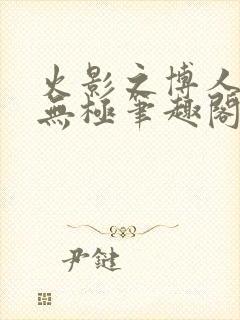 火影之博人
無極筆趣閣
尹鍵